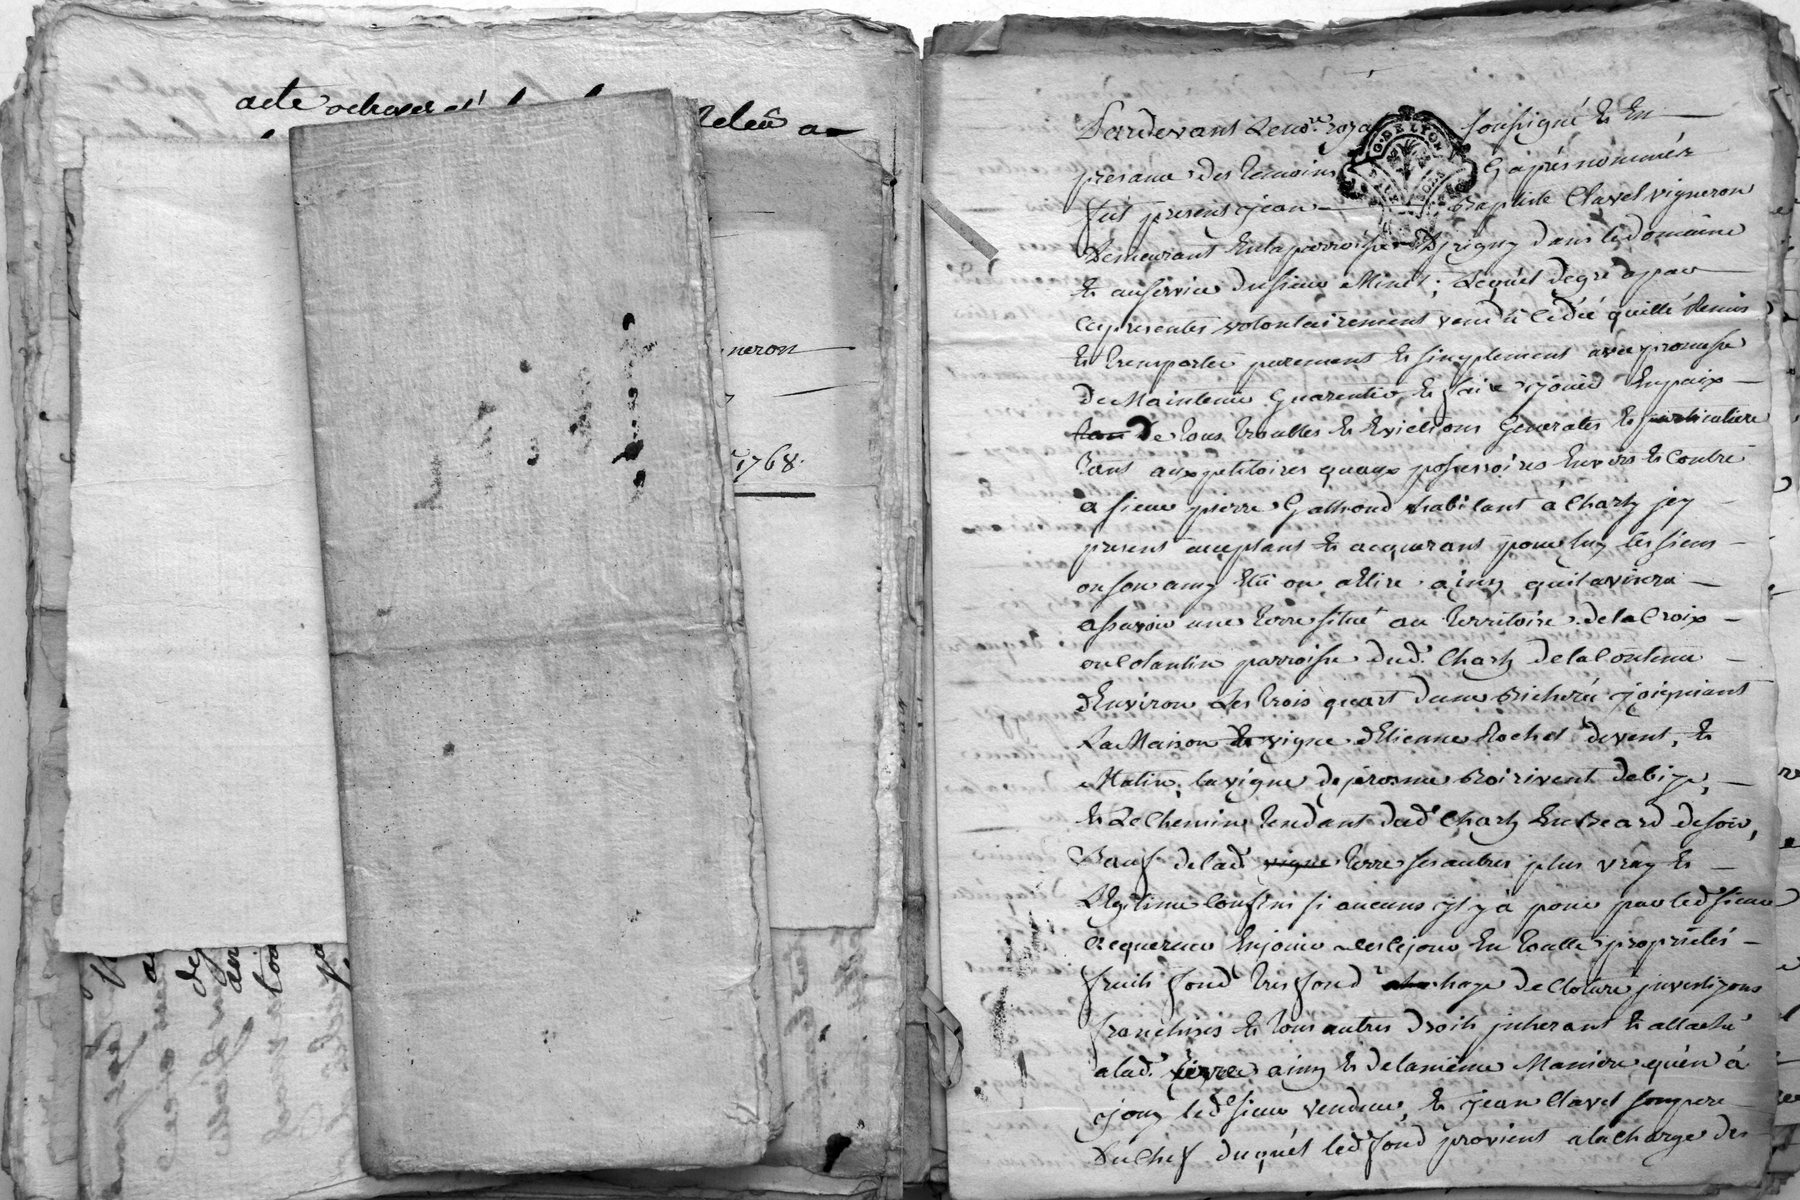 acte
neron
1768.
Pardevant Le no.re roya soussigné & En
presance des temoins Cy aprés nommés
fut present jean Baptiste Clavel vigneron
Demeurant En la parroisse D'jrigny dans le domaine
& au service du sieur Minet; Lequel de gré a par
Ces presentes volontairement vendu Cedé quitté Remis
& transporté purement & simplement avec promesse
De Maintenir Guarentir & faire joüir En paix
De tous troubles & Evictions Generales & particuliere
tant aux petitoires quaux possessoires Envers & Contre
a sieur pierre habitant à Charly jcy
present acceptant & acquerant pour luy les siens
ou son amy Elû ou a Elire ainsy quil avisera
assavoir une terre situé au territoire de la Croix
ou Cotantin parroisse dud. Charly de la Contenue
d'Environ Les trois quart dune Bicherée joignant
La Maison & vigne d'Etienne Rochet de vent, &
Matin, la vigne de jerosme Boirivent de bize,
& Le Chemin tendant dud. Charly En Beard de soir,
Sauf de lad. vigne terre ses autres plus vray &
Legitime Confins si aucuns jl y à pour par led. sieur
acquereur En joüir des Ce jour En toutte proprietés
fruits fond tres fond haye de Cloture
franchises & tous autres droits jnherant & attaché
a lad. terre ainsy & de la même Maniere qu'en à
joüy led. sieur vendeur, & jean Clavel son pere
Du Chef duquel led. fond provient a la Charge des
G. DE LYON